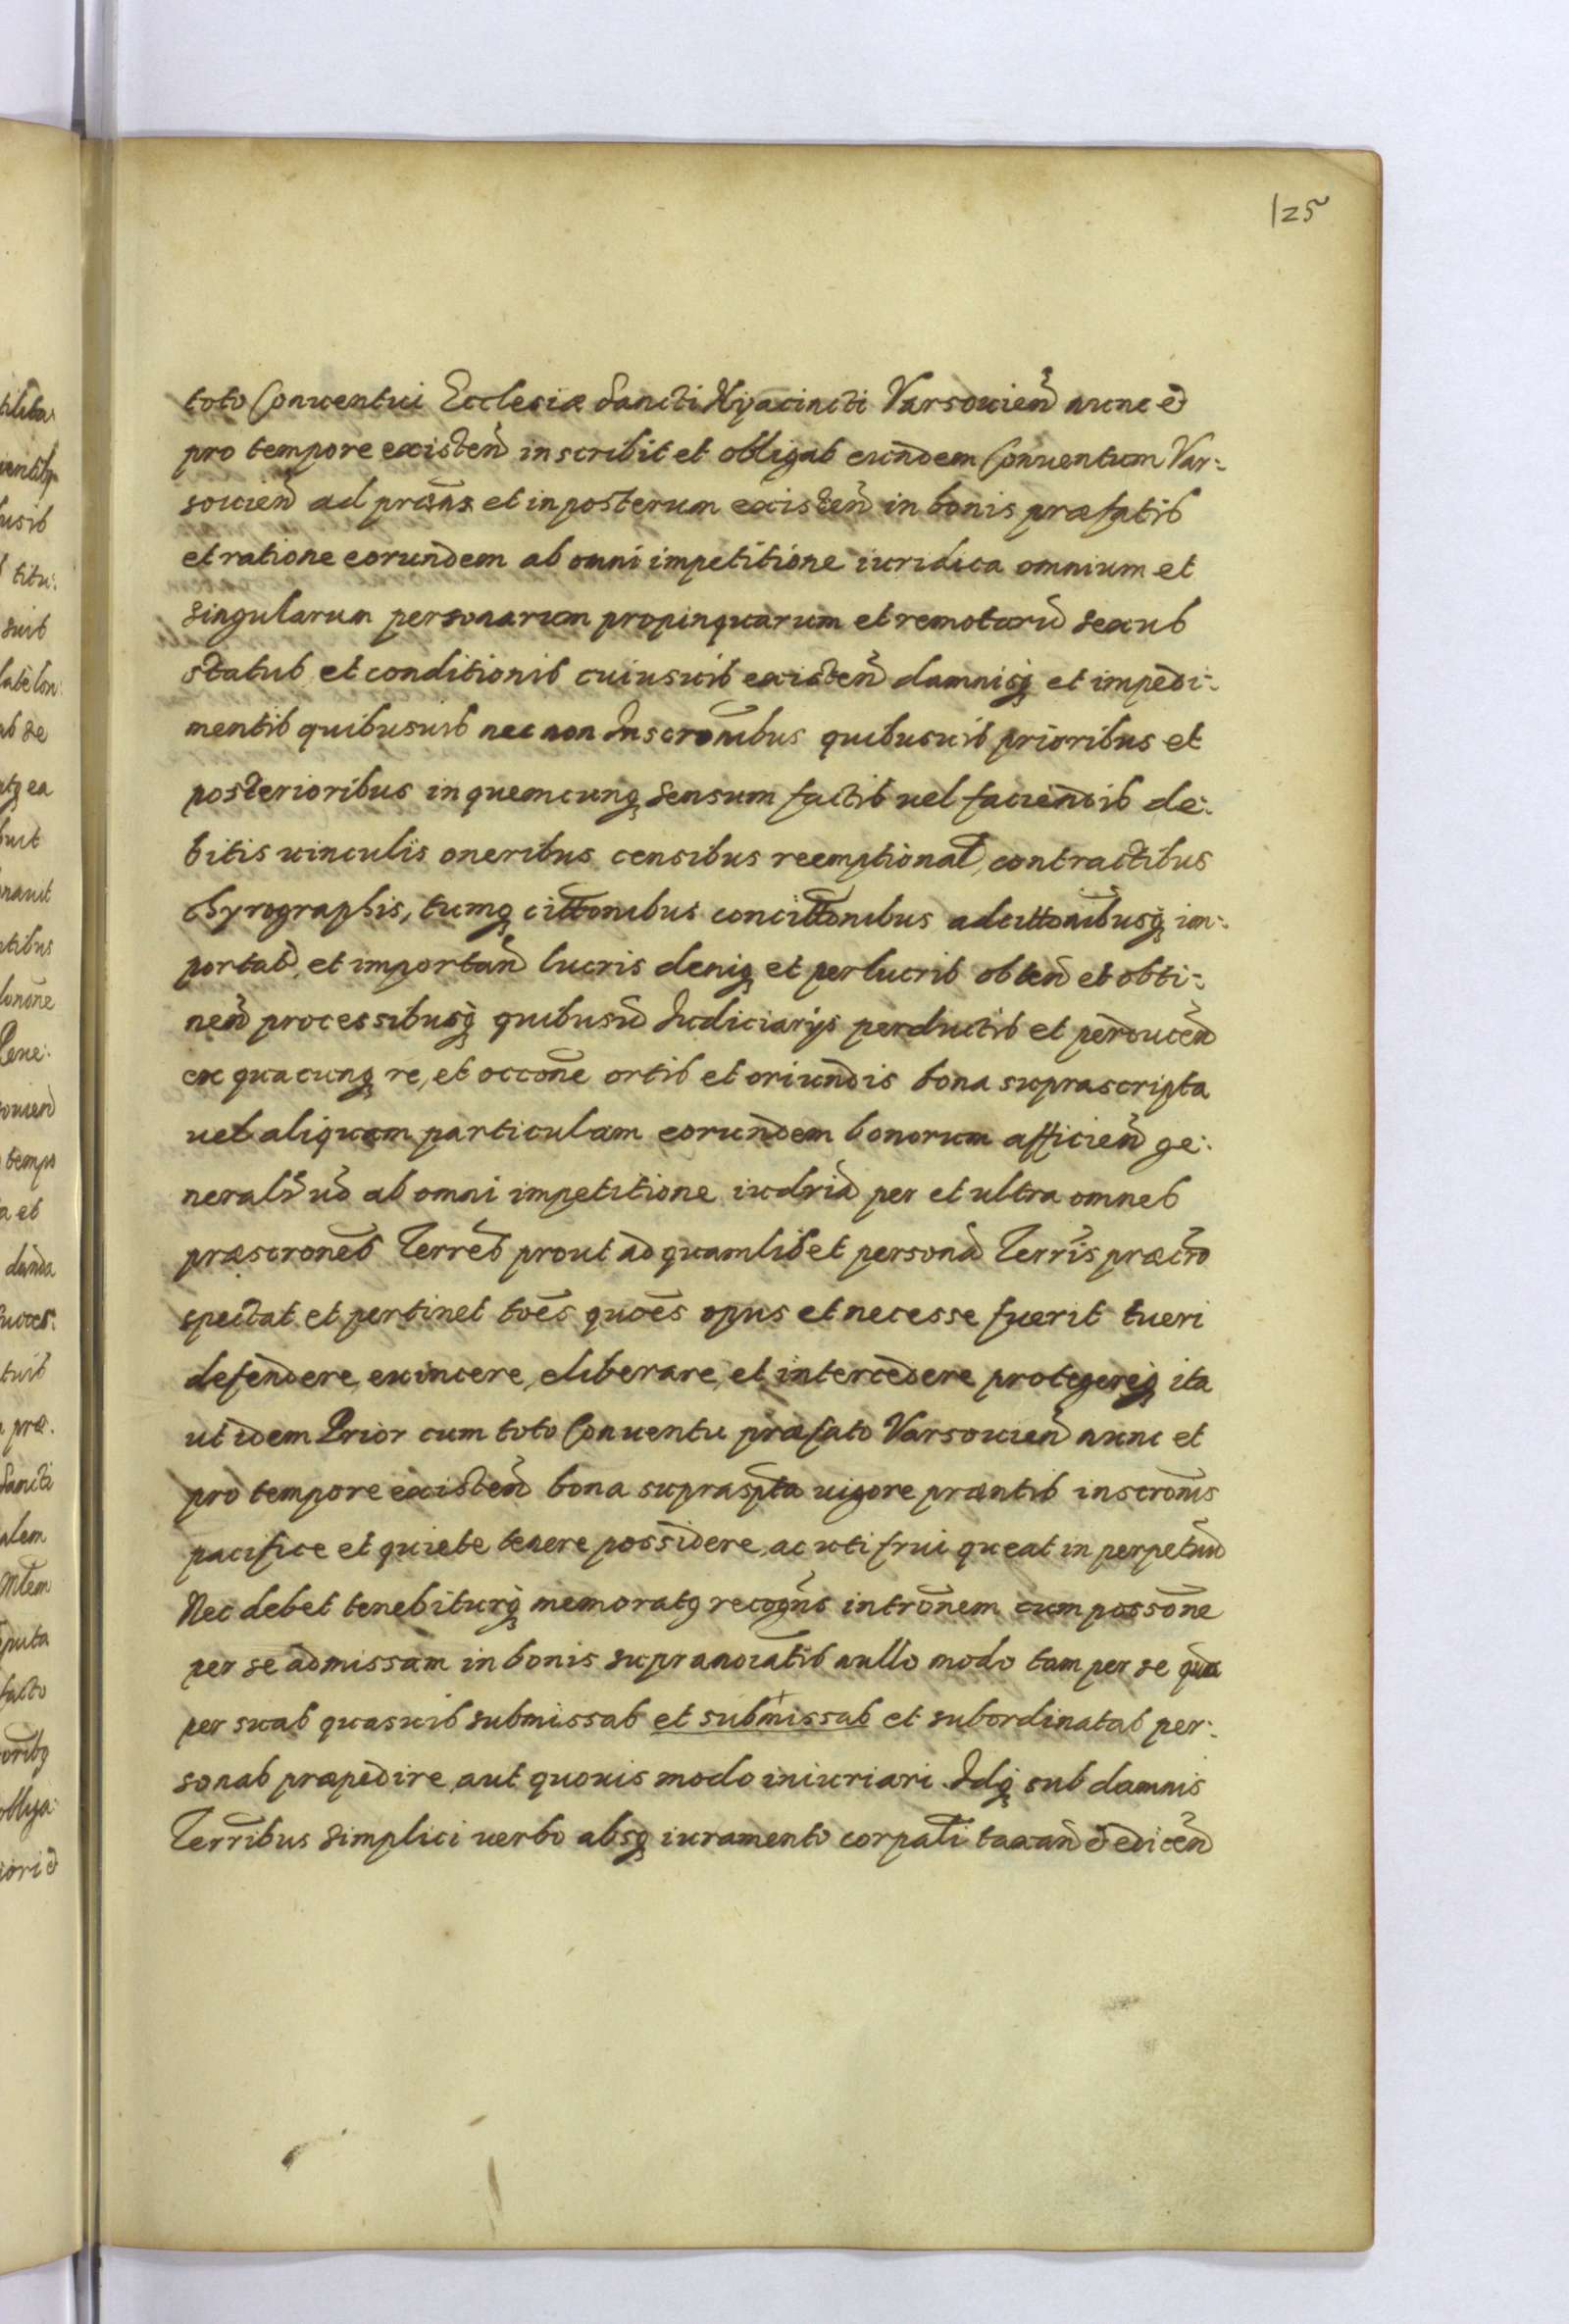 125
toto Conuentui Ecclesiæ Sancti Hyacincti Varsouień nunc et
pro tempore existeñ inscribit et obligat eundem Conuentum Var:
souień ad præsns et inposterum existeñ in bonis præfatis
et ratione eorundem ab omni impetitione iuridica omnium et
singularum personarum propinquarum et remotarũ sexus
status et conditionis cuiusuis existeñ damnisq; et impedi:
mentis quibusuis nec non Inscrõnibus quibusuis prioribus et
posterioribus in quemcunq; sensum factis uel faciendis de:
bitis uinculis oneribus censibus reemptional̃, contractibus
chyrographis, tumq; cittõnibus concittõnibus adcittõnibusq; im:
portat̃, et importañ lucris deniq; et perlucris obteñ et obti:
neñ processibusq; quibusũ Iudiciarijs perductis et perduceñ
ex quacunq; re, et occõne ortis et oriundis bona suprascripta
uel aliquam particulam eorundem bonorum afficieñ ge:
neralr̃ uõ ab omni impetitione iudriã per et ultra omnes
præscrõnes Terrẽs prout ad quamlibet personã Terrĩs præctõ
spectat et pertinet tões quões opus et necesse fuerit tueri
defendere, euincere, eliberare, et intercedere protegereq; ita
ut idem Prior cum toto Conuentu præfato Varsouień nunc et
pro tempore existeñ bona supraspta uigore præntis inscrõnis
pacifice et quiete tenere possidere, ac uti frui queat in perpetuũ
Nec debet tenebiturq; memoratq recogñs intrõnem cum possõne
per se admissam in bonis supranoiãtis nullo modo tam per se quã
per suas quasuis submissas et submissas et subordinatas per:
sonas præpedire aut quouis modo iniuriari. Idq; sub damnis
Terrĩbus simplici uerbo absq; iuramento corpali taxañ et ediceñ